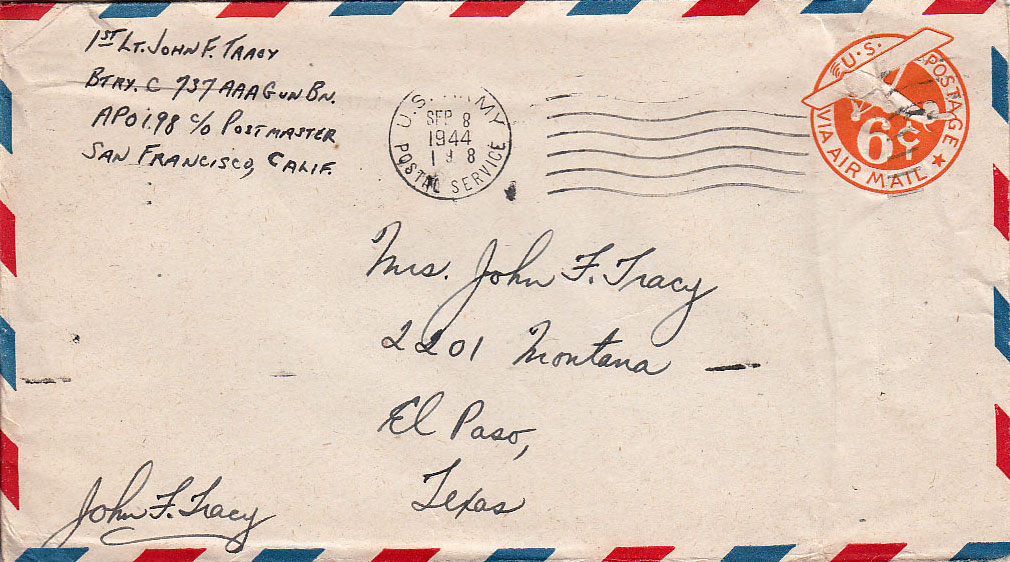 1ST LT. JOHN F. TRACY
BTRY. C 737 AAA GUN BN.
APO 198 C/O POSTMASTER
SAN FRANCISCO, CALIF.
U.S. ARMY
SEP 8
1944
POSTAL SERVICE
U.S. POSTAGE
6¢
VIA AIR MAIL
Mrs. John F. Tracy
2201 Montana
El Paso,
Texas
John F. Tracy